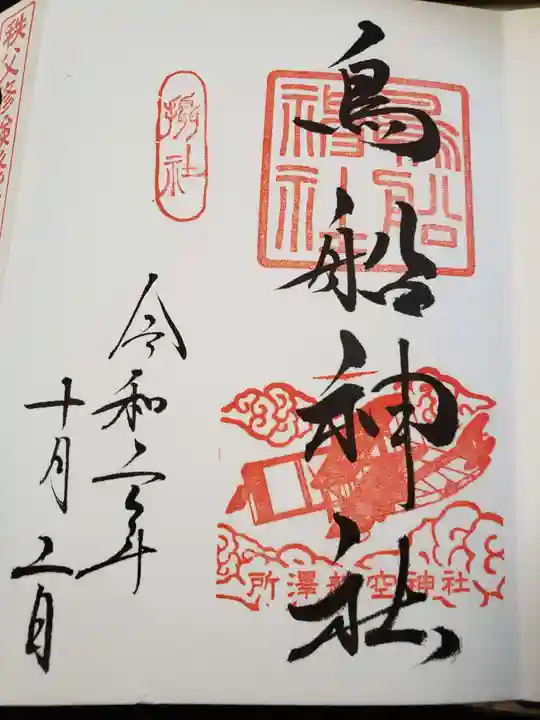 鳥船神社
鳥船神社
所澤航空神社
摂社
令和二年
十月二日